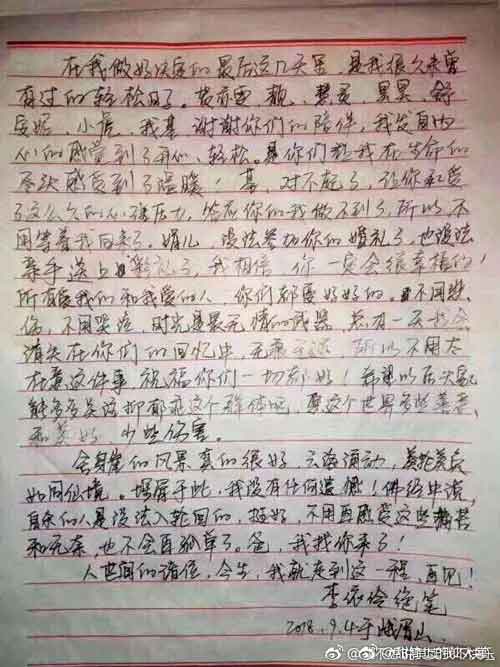 在我做好决定的最后这几天里，是我很久未曾
有过的轻松日子。
安妮、小虎、我 谢谢你们的陪伴，我发自内
心的感受到了开心、轻松。是你们让我在生命的
尽头感受到了温暖！ 对不起了，让你承受
了这么久的心理压力，答应你的我做不到了，所以不
用等着我回来了。娟儿 没法参加你的婚礼了，也没法
亲手送上 彩礼了，我相信 你一定会很幸福的！
所有爱我的和我爱的人 你们都要好好的。不用悲
伤，不用哭泣，时光是最无情的武器 总有一天我会
消失在你们的回忆中，无 所以不用太
在意这件事 祝福你们一切都好！希望以后大家
能多多关注抑郁症这个群体吧，愿这个世界多些善意
和美好，少些伤害。
舍身崖的风景真的很好 云海涌动，
如同仙境。 于此，我没有任何遗憾！佛经中说，
自杀的人是没法入轮回的，挺好，不用再感受这些痛苦
和无奈，也不会再孤单了。爸，我找你来了！
人世间的诸位，今生，我就走到这一程，再见！
李依伶绝笔
2018.9.4于峨眉山